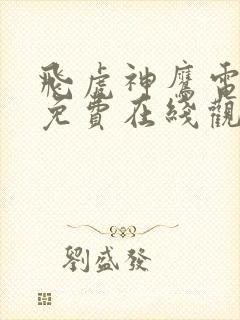 飛虎神鷹電
免費在綫觀
劉盛發